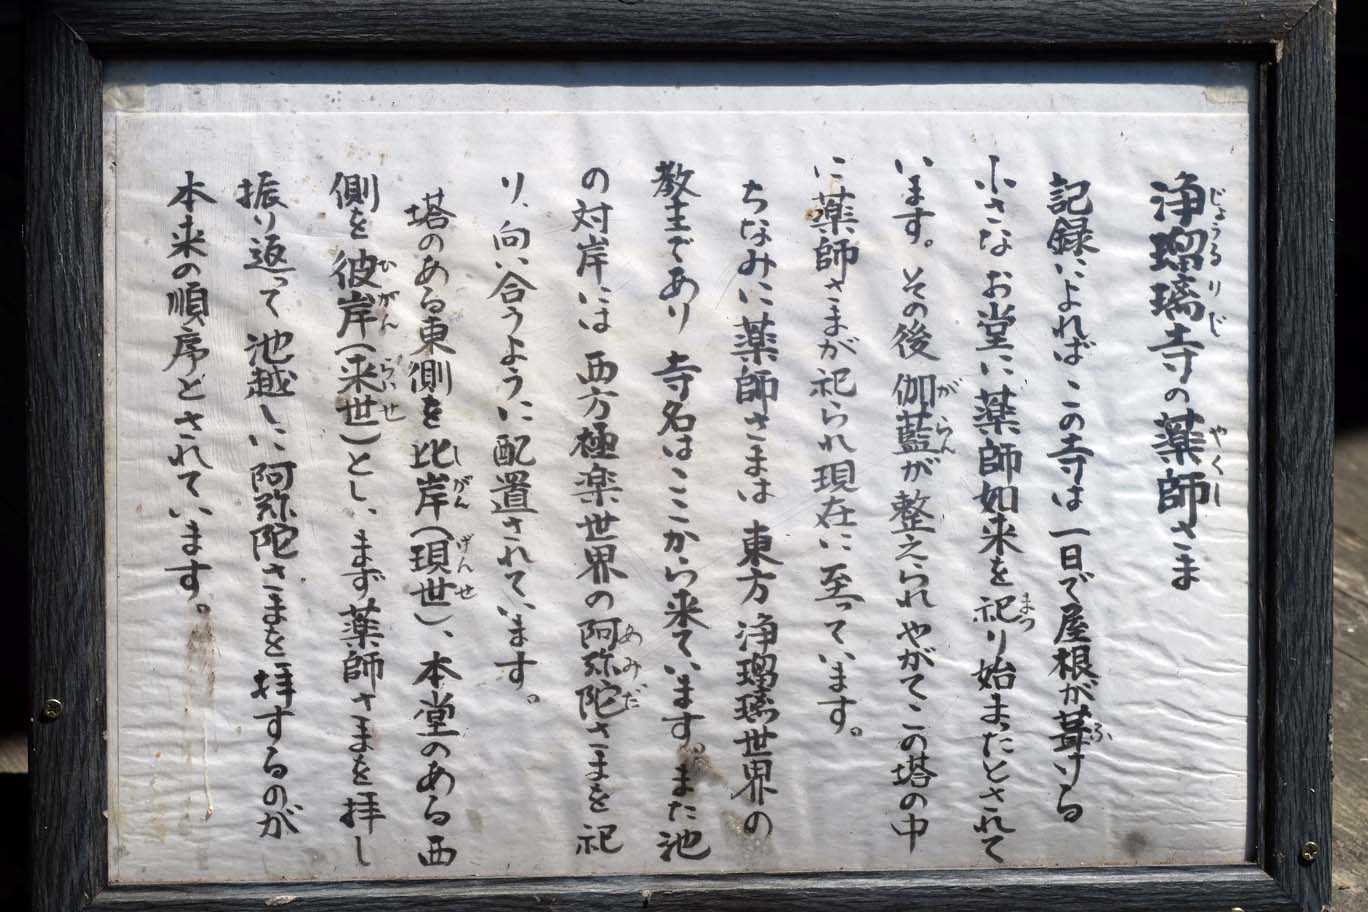 浄瑠璃寺の薬師さま
記録によれば この寺は 一日で屋根が葺ける
小さな お堂に 薬師如来を 祀り始まったとされて
います。その後 伽藍が 整えられ やがて この塔の中
に 薬師さまが 祀られ 現在に 至っています。
ちなみに 薬師さまは 東方 浄瑠璃世界の
教主であり 寺名は ここから 来ています。また 池
の対岸には 西方極楽世界の 阿弥陀さまを 祀
り、向い合うように 配置されています。
塔のある東側を 比岸(現世)、本堂のある 西
側を 彼岸(来世)とし、まず 薬師さまを 拝し
振り返って 池越しに 阿弥陀さまを 拝するのが
本来の順序とされています。
じょうるりじ
やくし
ふ
まつ
がらん
あみだ
しがん
げんせ
ひがん
らいせ